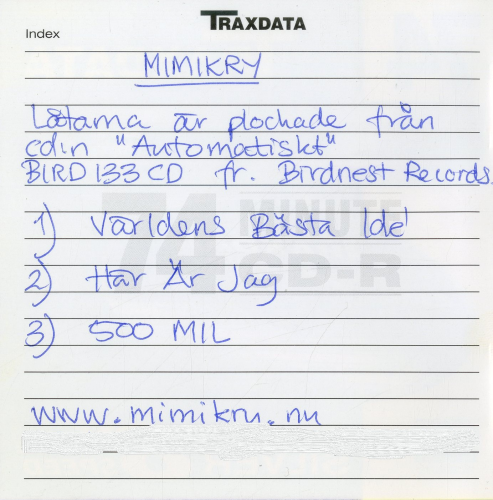 TRAXDATA
Index
MIMIKRY
Låtarna är plockade från
cd:n "Automatiskt"
BIRD 133 CD fr. Birdnest Records.
74 MINUTE
CD-R
1) Världens Bästa Idé
2) Här Är Jag
3) 500 MIL
www.mimikry.nu